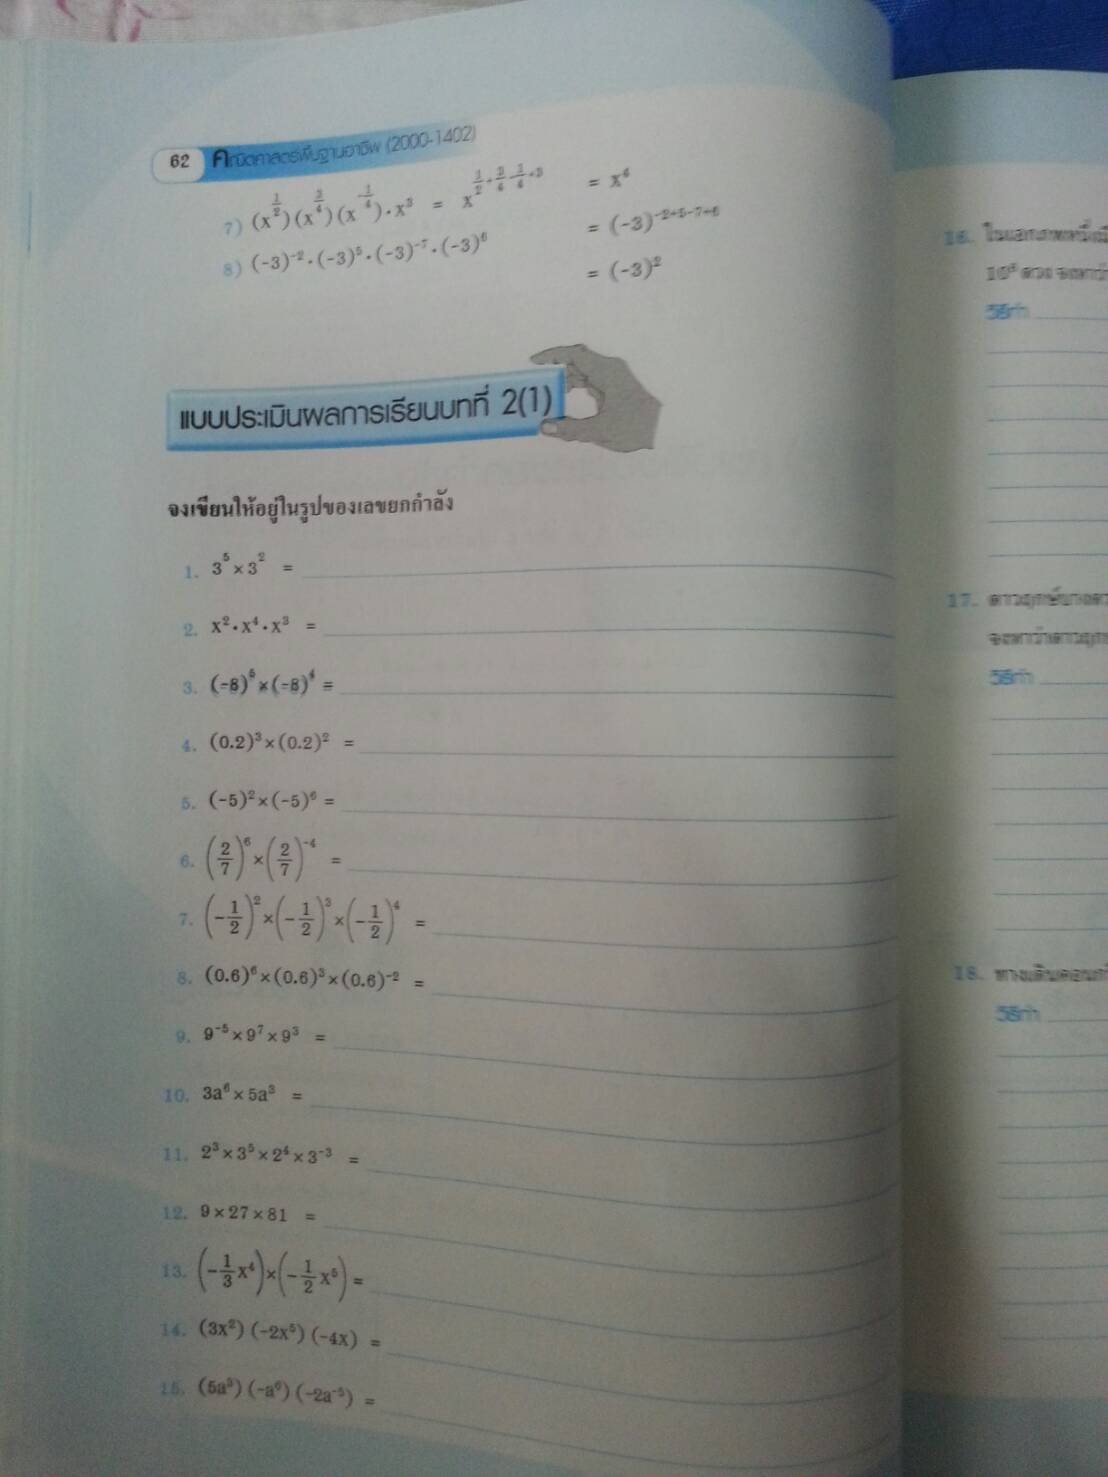 62 คณิตศาสตร์พื้นฐานอาชีพ (2000-1402)
7) (x^{1/2})(x^{3/4})(x^{-1/4})·x³ = x^{1/2+3/4-1/4+3} = x⁴
8) (-3)⁻²·(-3)⁵·(-3)⁻⁷·(-3)⁶ = (-3)^{-2+5-7+6}
= (-3)²
แบบประเมินผลการเรียนบทที่ 2(1)
จงเขียนให้อยู่ในรูปของเลขยกกำลัง
1. 3⁵×3² =
2. x²·x⁴·x³ =
3. (-8)⁵×(-8)⁴ =
4. (0.2)³×(0.2)² =
5. (-5)²×(-5)⁶ =
6. (2/7)⁶×(2/7)⁻⁴ =
7. (-1/2)²×(-1/2)³×(-1/2)⁴ =
8. (0.6)⁶×(0.6)³×(0.6)⁻² =
9. 9⁻⁵×9⁷×9³ =
10. 3a⁶×5a³ =
11. 2³×3⁵×2⁴×3⁻³ =
12. 9×27×81 =
13. (-1/3 x⁴)×(-1/2 x⁵) =
14. (3x²)(-2x⁵)(-4x) =
15. (5a³)(-a⁶)(-2a⁻⁵) =
16.
วิธีทำ
17.
วิธีทำ
18.
วิธีทำ